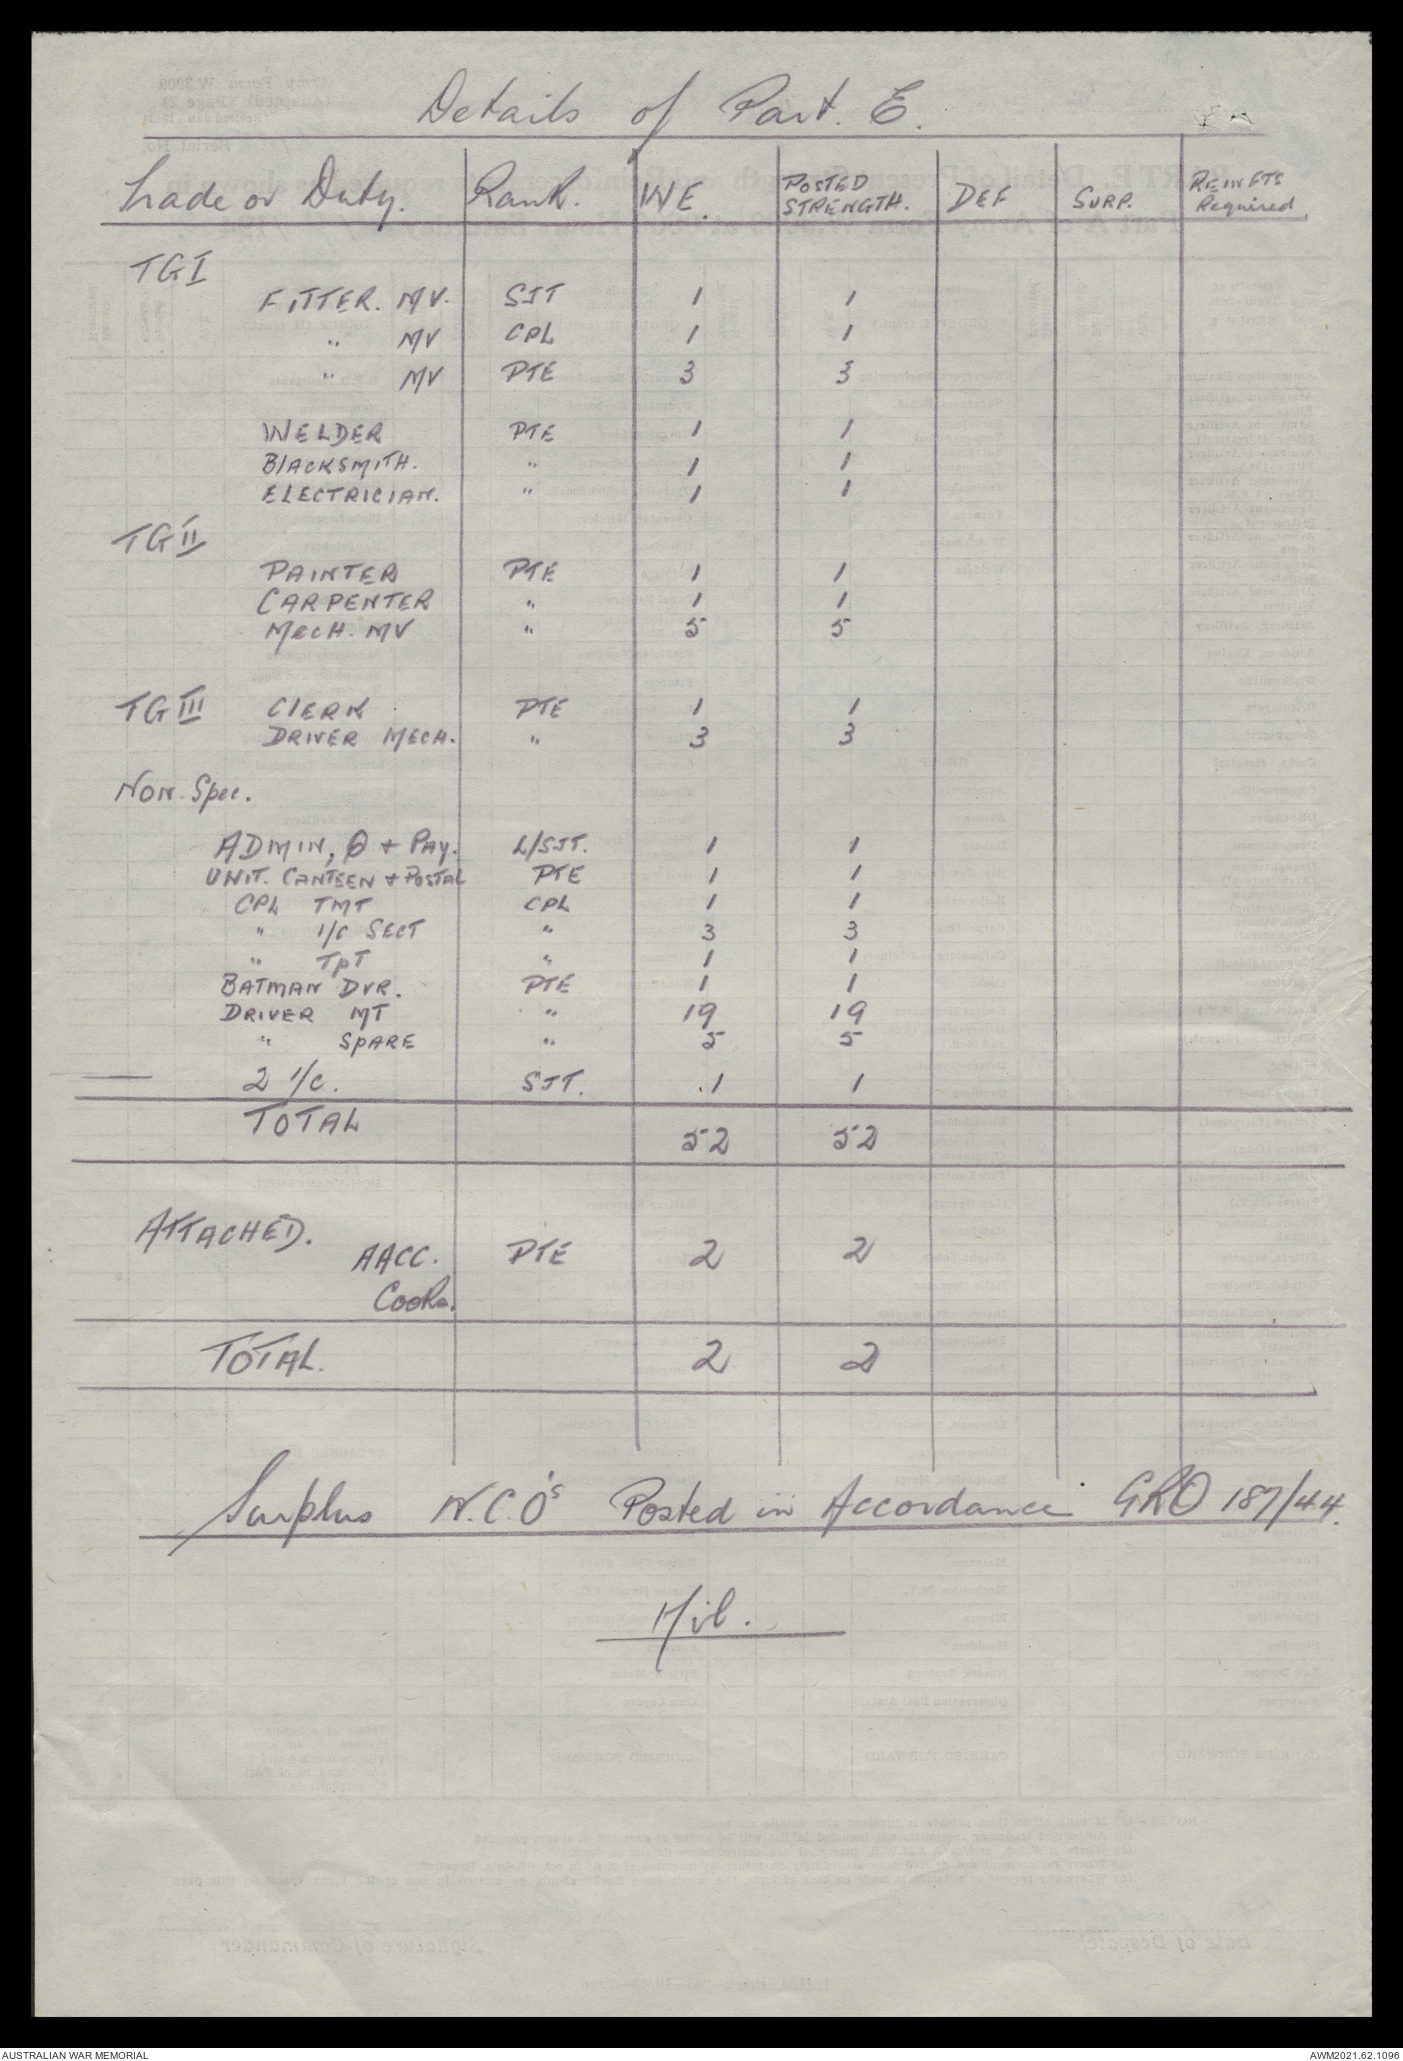 Details of Part. E.
Trade or Duty. Rank. WE. POSTED STRENGTH. DEF SURP. REINFTS Required
TG I
FITTER. MV. SJT 1 1
" MV CPL 1 1
" MV PTE 3 3
WELDER PTE 1 1
BLACKSMITH. " 1 1
ELECTRICIAN. " 1 1
TG II
PAINTER PTE 1 1
CARPENTER " 1 1
MECH. MV " 5 5
TG III CLERK PTE 1 1
DRIVER MECH. " 3 3
Non. Spec.
ADMIN, Q + PAY. L/SJT. 1 1
UNIT. CANTEEN + POSTAL PTE 1 1
CPL TMT CPL 1 1
" I/C SECT " 3 3
" TPT " 1 1
BATMAN DVR. PTE 1 1
DRIVER MT " 19 19
" SPARE " 5 5
2 I/C. SJT. 1 1
TOTAL 52 52
ATTACHED.
AACC. PTE 2 2
Cooks.
TOTAL. 2 2
Surplus N.C.O's Posted in Accordance GRO 187/44.
Nil.
AUSTRALIAN WAR MEMORIAL AWM2021.62.1096